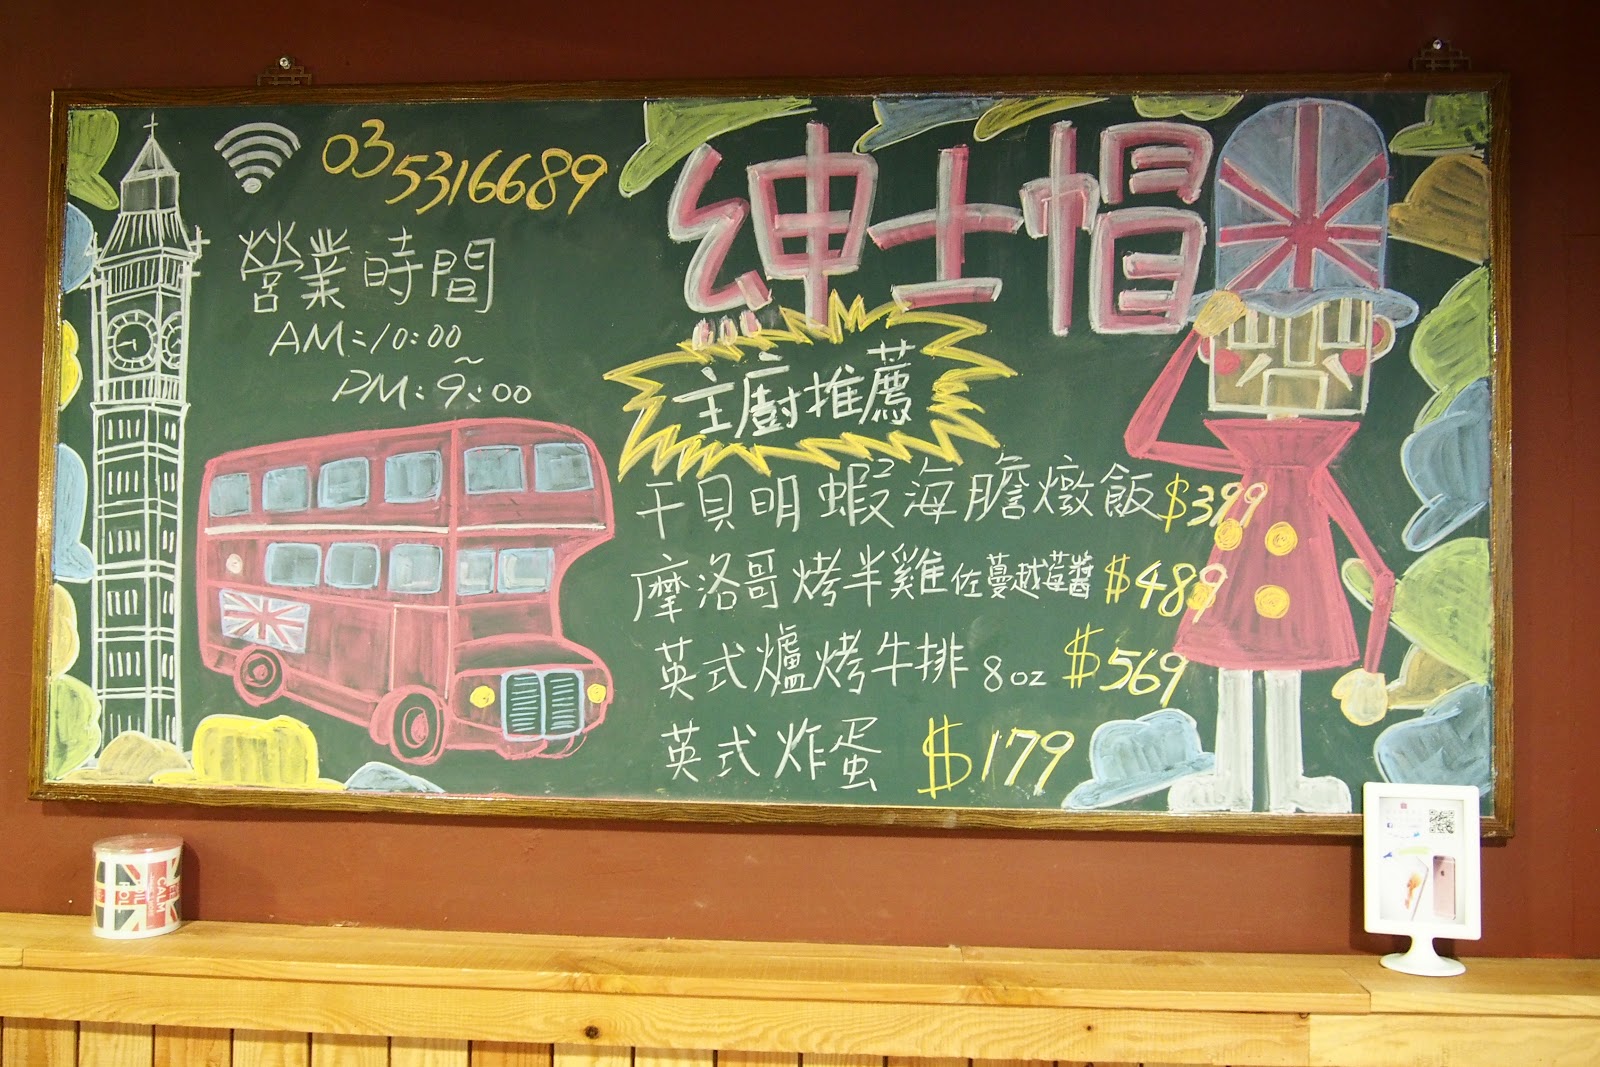 03 5316689
營業時間
AM:10:00
~
PM:9:00
紳士帽
主廚推薦
干貝明蝦海膽燉飯 $399
摩洛哥烤半雞佐蔓越莓醬 $489
英式爐烤牛排 8oz $569
英式炸蛋 $179
CALM